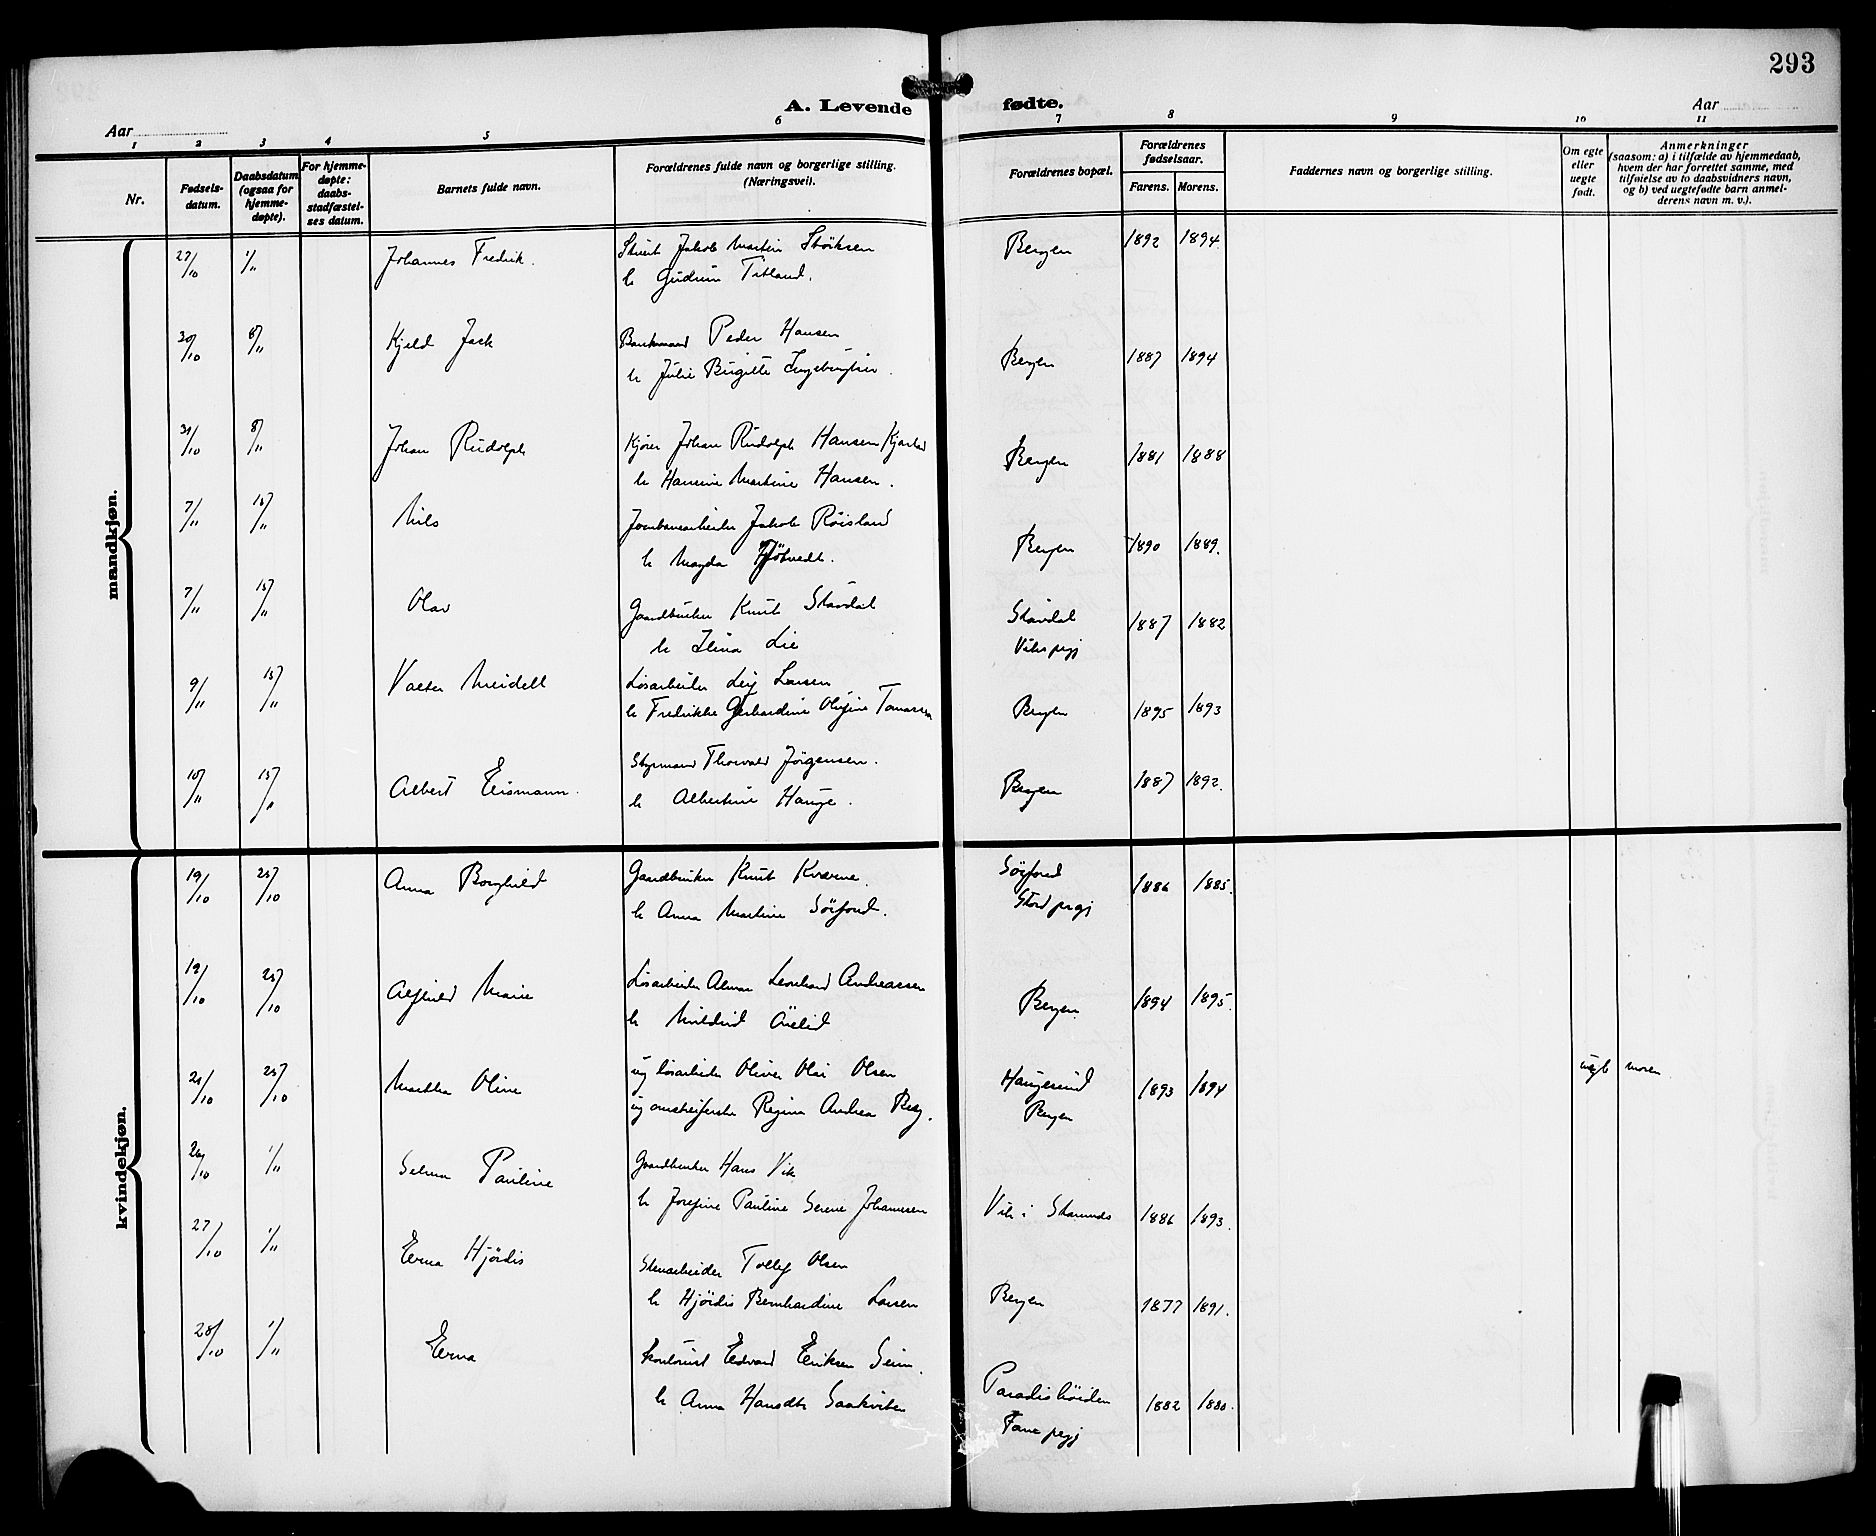 293
A. Levende fødte.
Aar
Aar
1 2 3 4 5 6 7 8 9 10 11
Nr.
Fødsels-datum.
Daabsdatum (ogsaa for hjemme-døpte).
For hjemme-døpte: daabs-stadfæstel-ses datum.
Barnets fulde navn.
Forældrenes fulde navn og borgerlige stilling. (Næringsvei).
Forældrenes bopæl.
Forældrenes fødselsaar.
Farens. Morens.
Faddernes navn og borgerlige stilling.
Om egte eller uegte født.
Anmerkninger (saasom: a) i tilfælde av hjemmedaab, hvem der har forrettet samme, med tilføielse av to daabsvidners navn, og b) ved uegtefødte barn anmel-derens navn m. v.).
mandkjøn.
27/10 1/11 Johannes Fredrik. Jakob Martin Bergen 1892 1894
h Gudrun
30/10 8/11 Kjeld Jack Peder Hansen Bergen 1887 1894
h Julie Birgitte
31/10 8/11 Johan Rudolph Kjører Johan Rudolph Hansen Bergen 1881 1888
h Hansine Martine Hansen.
7/11 15/11 Nils Jernbanearbeider Jakob Røisland Bergen 1890 1889.
h Magda
7/11 15/11 Olav Gaardbruker Knut Stavdal Stavdal 1887 1882
h Lie Viks prgj
9/11 15/11 Valter Meidell Løsarbeider Leif Larsen Bergen 1895 1893
h Fredrikke Gerhardine Olufine Tomassen
10/11 15/11 Albert Eismann. Styrmand Thorvald Jørgensen. Bergen 1887 1892.
h Albertine Hauge.
kvindekjøn.
19/10 25/10 Anna Borghild Gaardbruker Knut Kværne. Sørfond 1886 1885.
h Anna Martine Sørfond. Stord prgj
19/10 25/10 Alfhild Marie Løsarbeider Almar Leonhard Andreassen Bergen 1894 1895.
h Mildrid
21/10 25/10 Martha Oline ug løsarbeider Oliver Olai Olsen Haugesund 1893 1894 uegte moren
ug Regina Andrea Berg. Bergen
26/10 1/11 Selma Pauline Gaardbruker Hans Vik Vik i 1886 1893.
h Josefine Pauline Serine Johannessen
27/10 1/11 Erna Hjördis Stenarbeider Tollef Olsen Bergen 1877 1891.
h Hjördis Bernhardine Larsen
28/10 1/11 Erna Kontorist Edvard Eriksen Seim. Paradishöiden 1882 1880.
h Anna Hansdtr Saakvitne Fane prgj